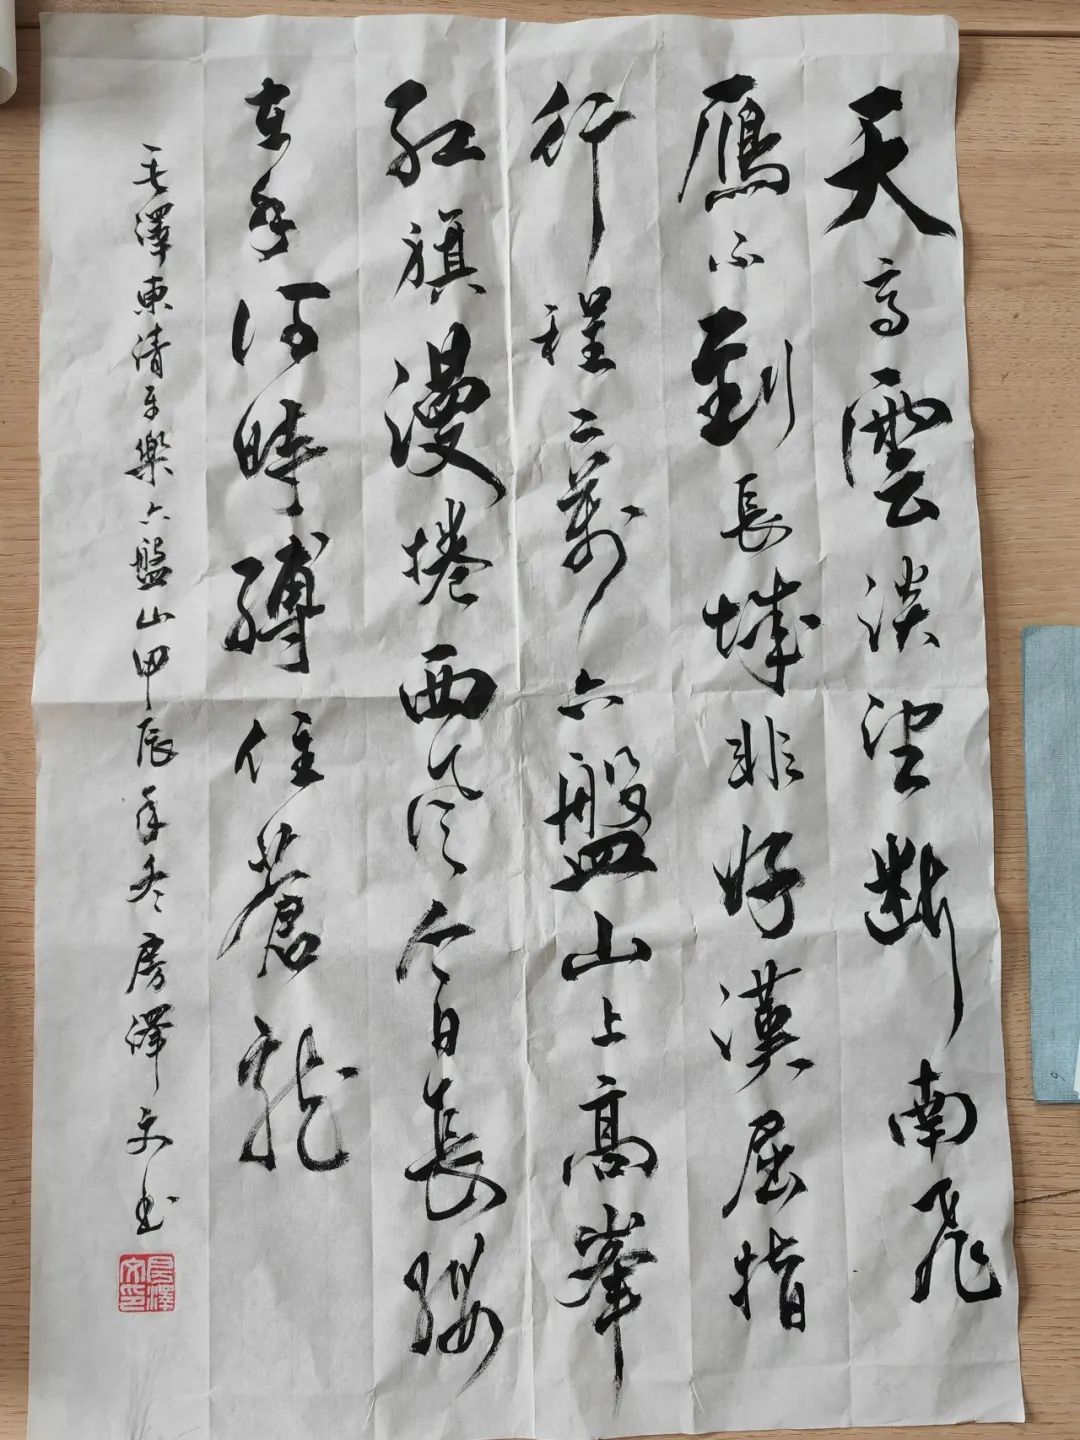 天高雲淡望斷南飛
鴈不到長城非好漢屈指
行程二萬六盤山上高峯
紅旗漫捲西風今日長纓
在手何時縛住蒼龍
毛澤東清平樂六盤山甲辰年冬房澤文書
房澤文印